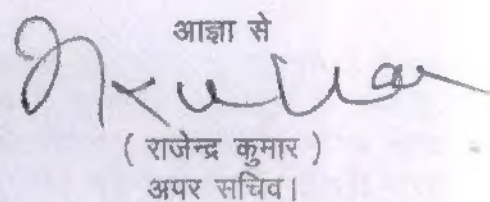 आज्ञा से
( राजेन्द्र कुमार )
अपर सचिव।